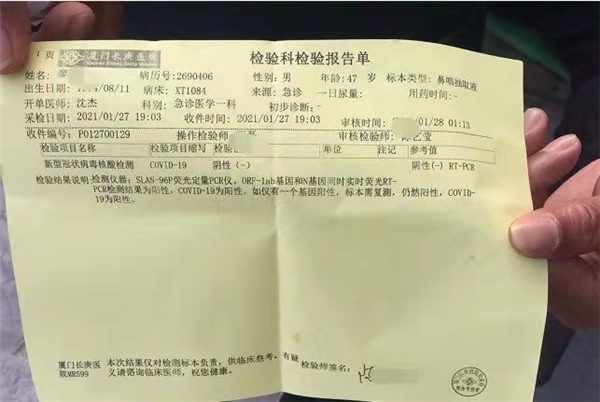 1 页 厦门长庚医院 检验科检验报告单
姓名: 廖 病历号:2690406 性别: 男 年龄:47 岁 标本类型: 鼻咽抽取液
出生日期: /08/11 病床: XT1084 来源: 急诊 一日尿量: 用药时间:-
开单医师: 沈杰 科别: 急诊医学一科 初步诊断:-
采检时间: 2021/01/27 19:03 收件时间: 2021/01/27 19:03 审核时间: /01/28 01:13
收件编号: P012700129 操作检验师: 审核检验师: 莹
检验项目名称 检验项目缩写 单位 备注 参考值
新型冠状病毒核酸检测 COVID-19 阴性(-) 阴性(-) RT-PCR
检验结果说明:检测仪器: SLAN-96P荧光定量PCR仪。ORF-1ab基因和N基因同时实时荧光RT-
PCR检测结果为阳性，COVID-19为阳性。如仅有一个基因阳性，标本需复测，仍然阳性，COVID-
19为阳性。
厦门长庚医 本次结果仅对检测标本负责，供临床参考。有疑
院MR599 义请咨询临床医师，祝您健康。 检验师签名: